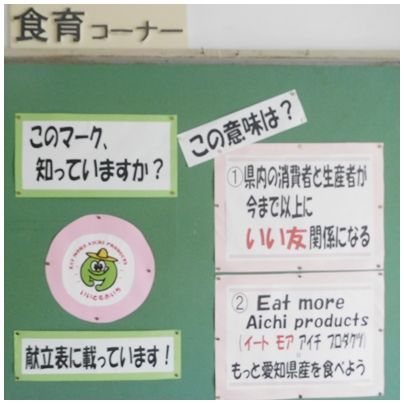 食育コーナー
このマーク、
知っていますか？
この意味は？
①県内の消費者と生産者が
今まで以上に
いい友関係になる
EAT MORE AICHI PRODUCTS
いいともあいち
② Eat more
Aichi products
(イート モア アイチ プロダクツ)
もっと愛知県産を食べよう
献立表に載っています！